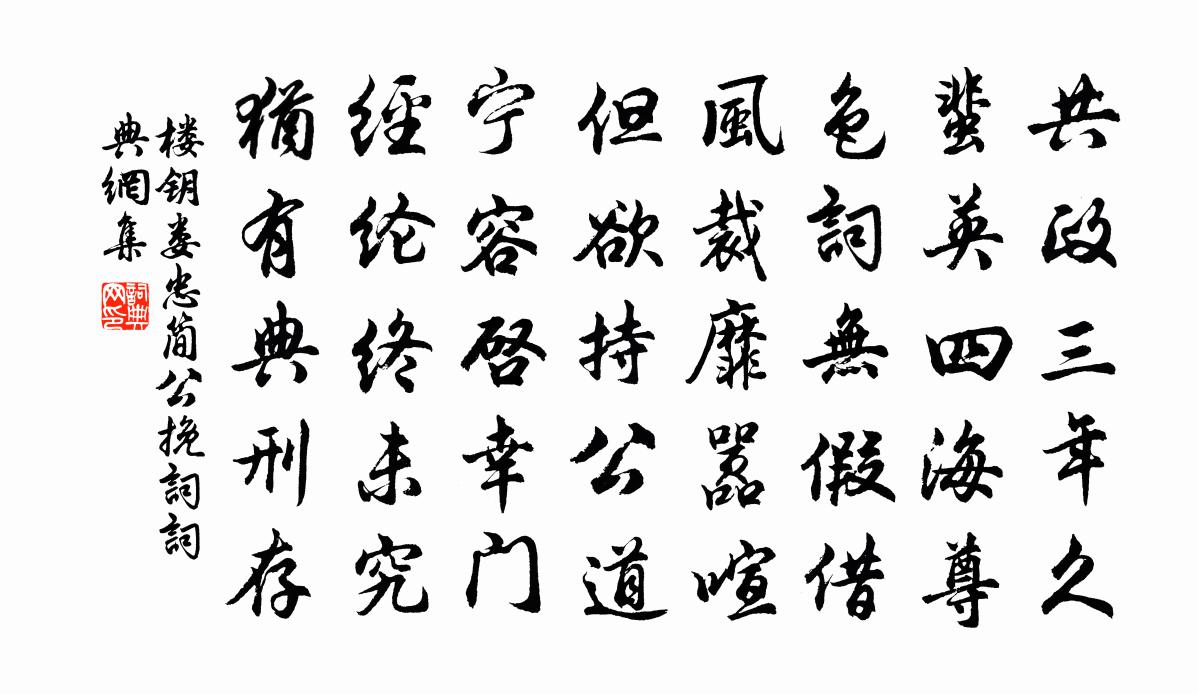 共政三年久
蜚英四海尊
色詞無假借
風裁靡嚣喧
但欲持公道
宁容啓幸门
經纶终未究
猶有典刑存
楼钥娄忠简公挽詞詞
典網集
詞典网印